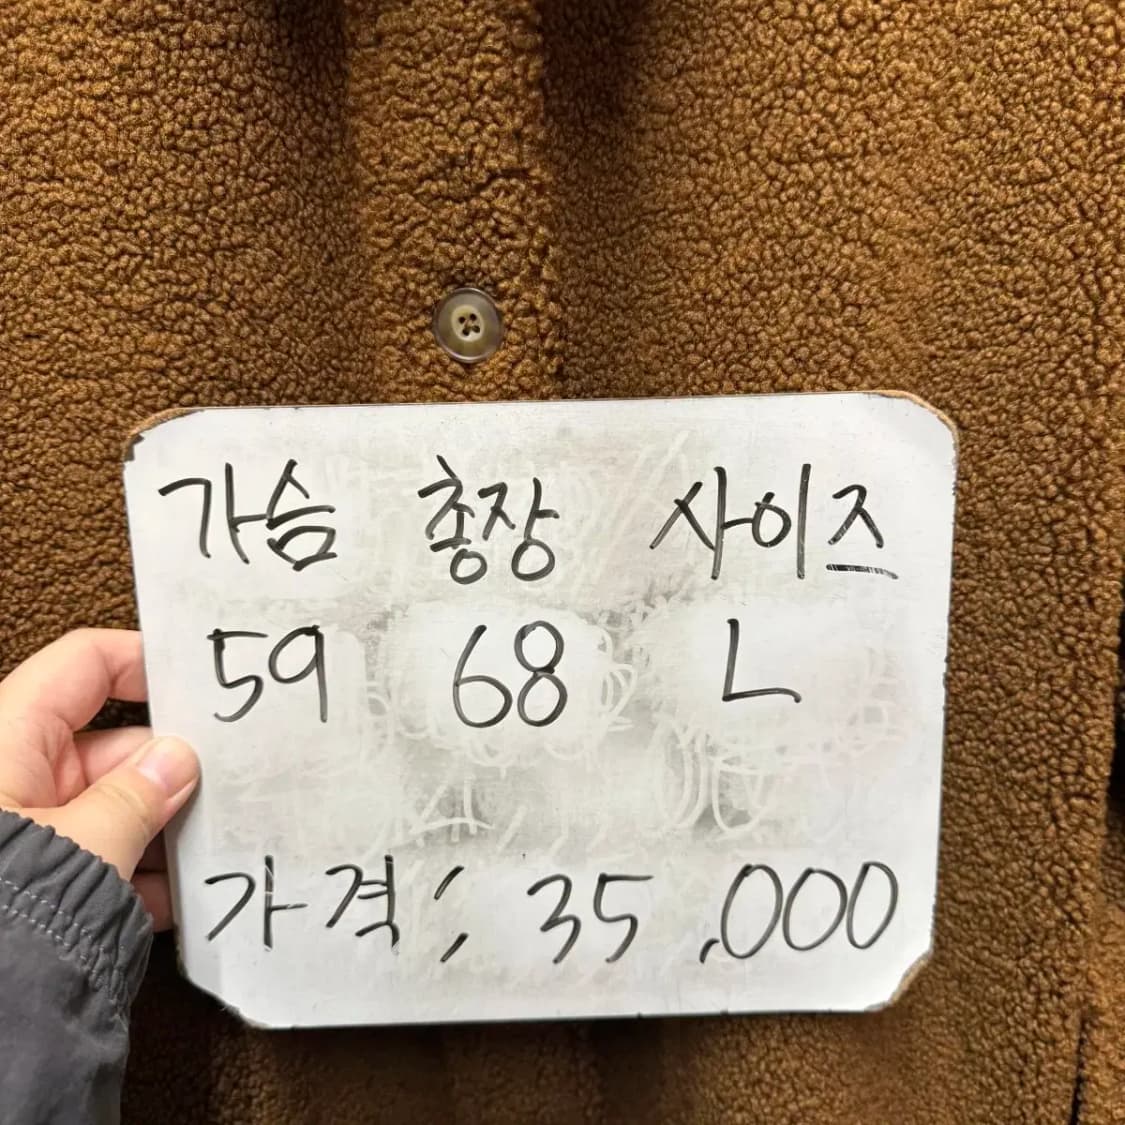 가슴 총장 사이즈
59 68 L
가격; 35,000